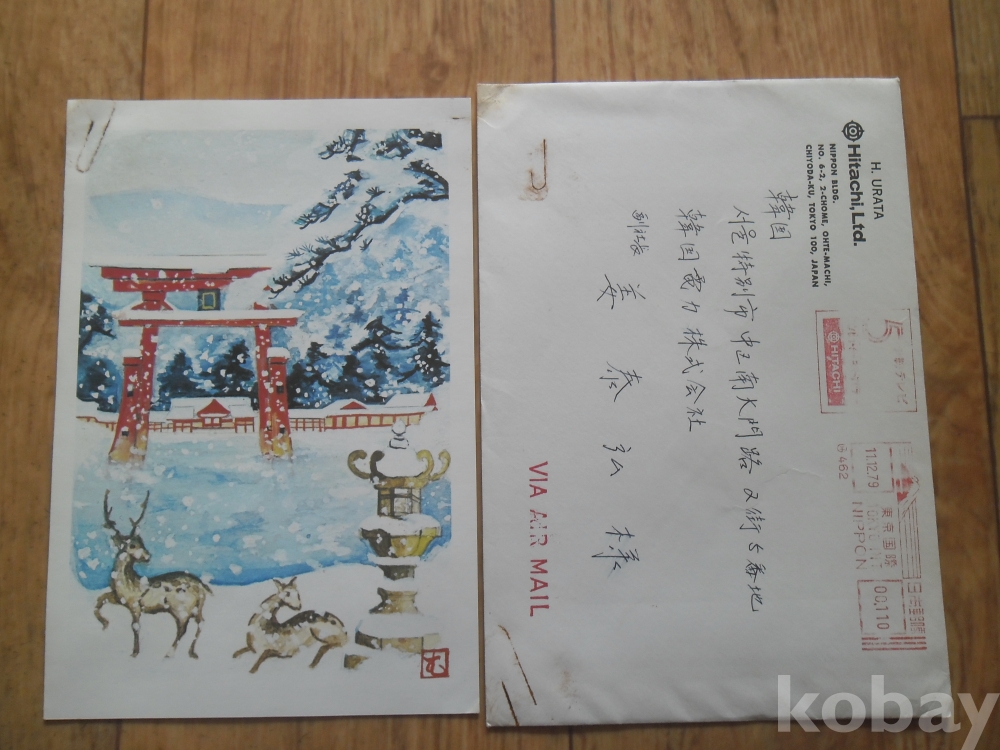 H. URATA
Hitachi, Ltd.
NIPPON BLDG.
NO. 6-2, 2-CHOME, OHTE-MACHI,
CHIYODA-KU, TOKYO 100, JAPAN
韓国
서울特別市中区南大門路 2街5番地
韓国電力株式会社
副社長 姜 泰 弘 様
VIA AIR MAIL
HITACHI
11.12.79
東京国際
NIPPON
00110
日本郵便
kobay